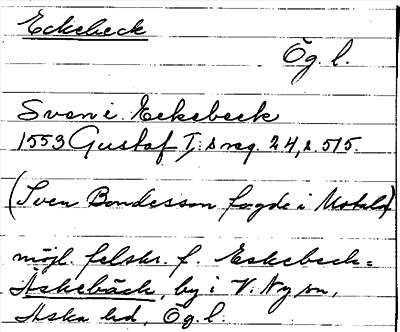 Eckebeck
Ög. l.
Sven i Eckebeck
1553 Gustaf I:s reg. 24, s. 515.
(Sven Bondesson fogde i Motala)
möjl. felskr. f. Eskebeck =
Askebäck, by i V. Ny sn,
Aska hd, Ög. l.